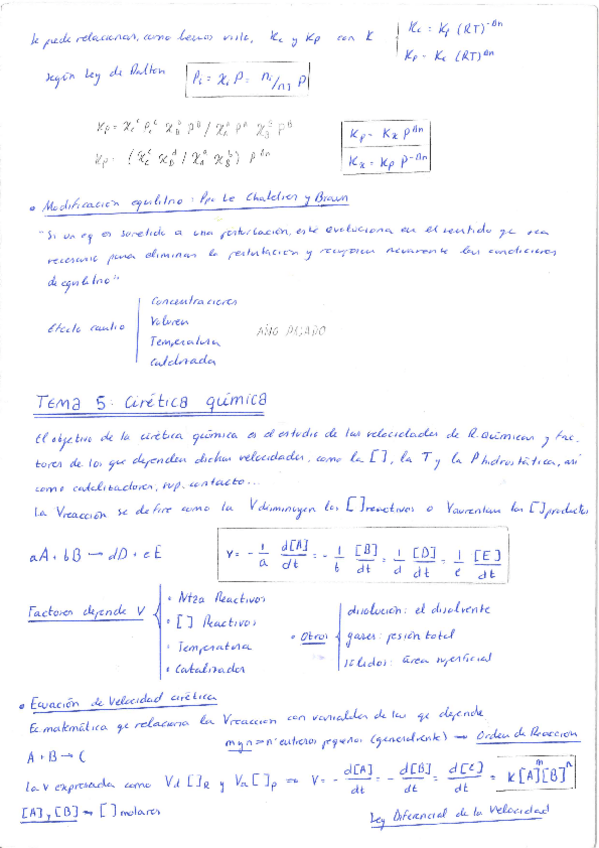 Se puede relacionar, como hemos visto, Kc y Kp con K
Kc = Kp (RT)^-Δn
Kp = Kc (RT)^Δn
según Ley de Dalton
Pi = χi P = ni/nT P
Kp = χc^c P^c χD^d P^d / χA^a P^a χB^b P^b
Kp = (χc^c χD^d / χA^a χB^b) P^Δn
Kp = Kx P^Δn
Kx = Kp P^-Δn
• Modificación equilibrio: Ppo Le Chatelier y Braun
"Si un eq es sometido a una perturbación, este evoluciona en el sentido qe sea
necesario para eliminar la perturbación y recuperar nuevamente las condiciones
de equilibrio"
Efecto cambio
Concentraciones
Volumen
Temperatura
Catalizador
AÑO PASADO
TEMA 5: Cinética química
El objetivo de la cinética química es el estudio de las velocidades de R.Químicas y fac-
tores de los que dependen dichas velocidades, como la [], la T y la P hidrostática, así
como catalizadores, sup. contacto...
La Vreacción se define como la V disminuyen los [] reactivos o V aumentan los [] productos
aA + bB → dD + eE
V = - 1/a d[A]/dt = - 1/b [B]/dt = 1/d [D]/dt = 1/e [E]/dt
Factores depende V
• Ntza Reactivos
• [] Reactivos
• Temperatura
• Catalizador
• Otros
disolución: el disolvente
gases: presión total
sólidos: área superficial
• Ecuación de Velocidad cinética
Ec matemática qe relaciona la Vreacción con variables de las qe depende
m y n = nº enteros pequeños (generalmente) → Orden de Reacción
A + B → C
la V expresada como Vd []R y Va []P ⇒ V = - d[A]/dt = - d[B]/dt = d[C]/dt = K[A]^m[B]^n
[A] y [B] → [] molares
Ley Diferencial de la Velocidad